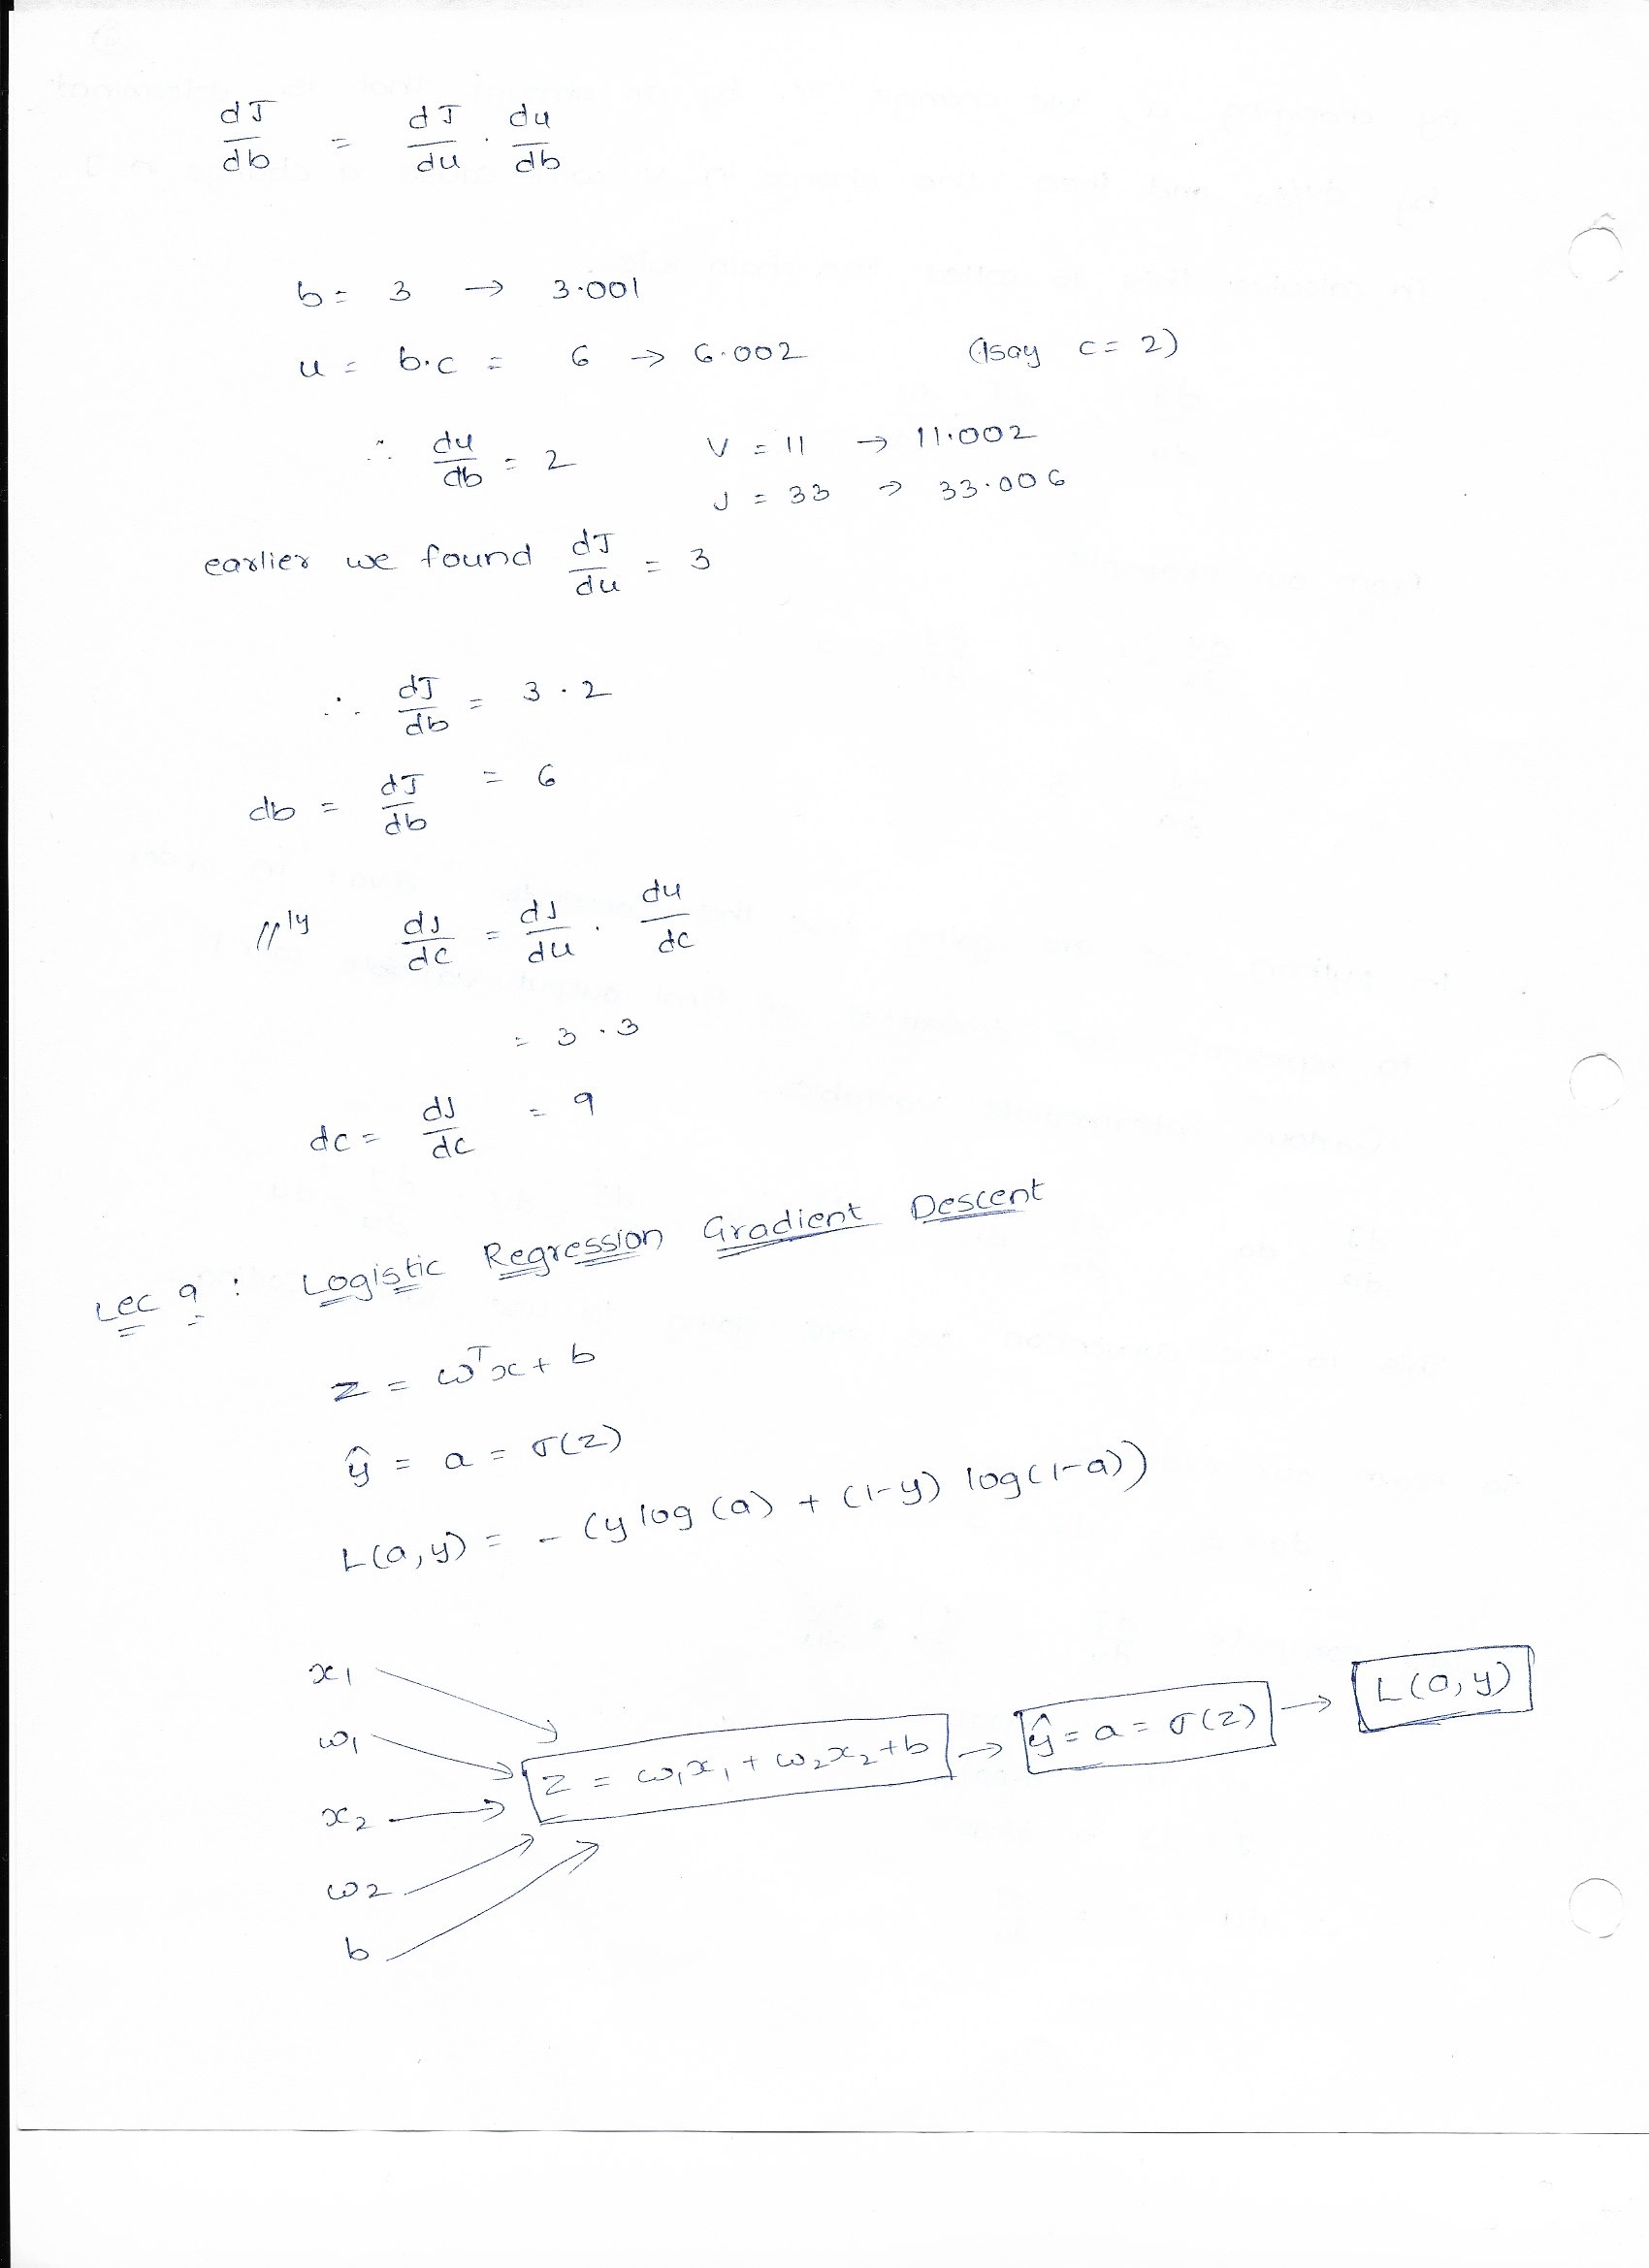 dJ/db = dJ/du · du/db
b = 3 → 3.001
u = b.c = 6 → 6.002 (say c = 2)
∴ du/db = 2 V = 11 → 11.002
J = 33 → 33.006
earlier we found dJ/du = 3
∴ dJ/db = 3 . 2
db = dJ/db = 6
//ly dJ/dc = dJ/du . du/dc
= 3 . 3
dc = dJ/dc = 9
Lec 9 : Logistic Regression Gradient Descent
z = ω^T x + b
ŷ = a = σ(z)
L(a,y) = - (y log (a) + (1-y) log(1-a))
x1
ω1
z = ω1x1 + ω2x2 + b → ŷ = a = σ(z) → L(a,y)
x2
ω2
b